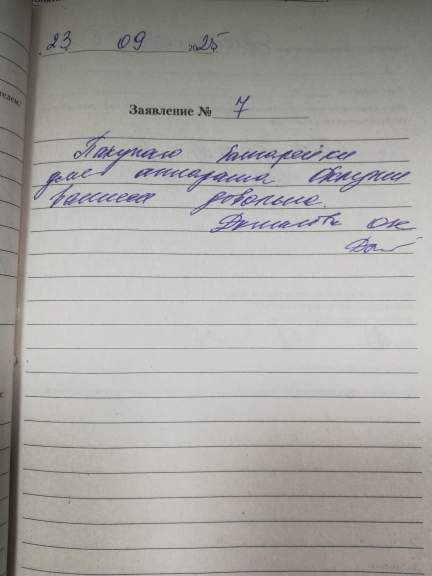 23 09 2025
Заявление № 7
Покупаю батарейки
для аппарата Обслужи
ванием довольна.